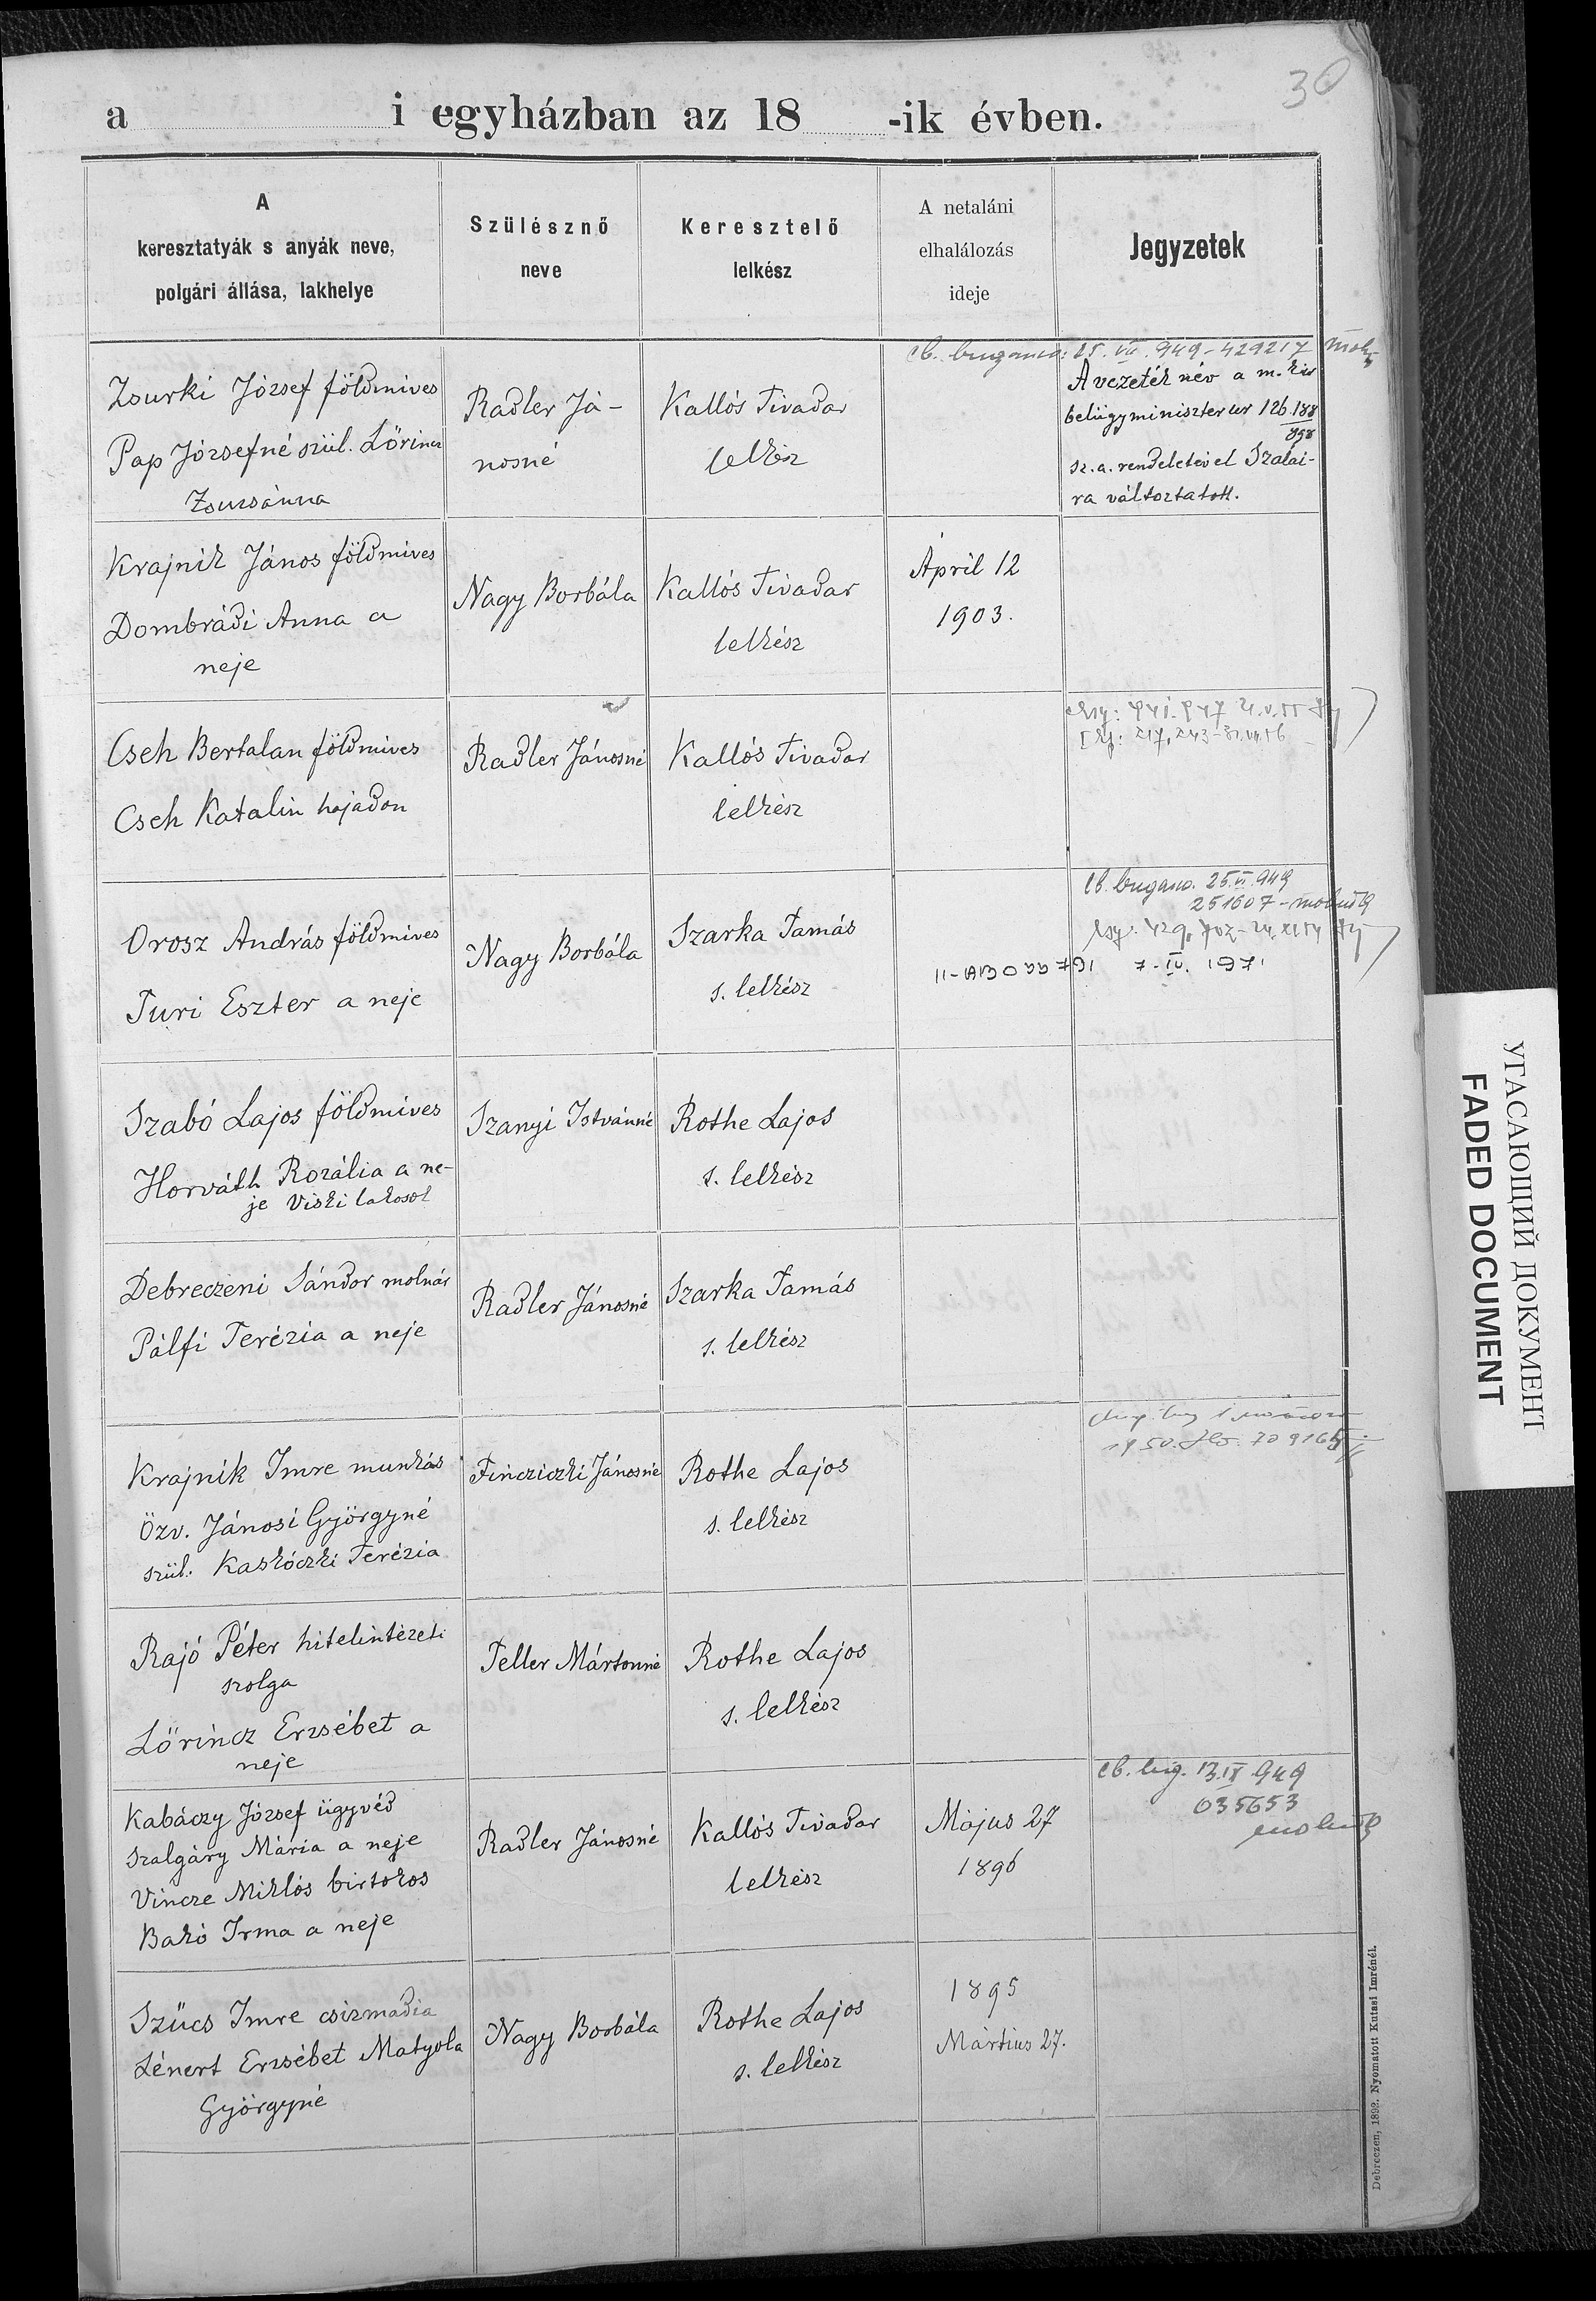 30
a i egyházban az 18 -ik évben.
A
keresztatyák s anyák neve,
polgári állása, lakhelye
Szülésznő
neve
Keresztelő
lelkész
A netaláni
elhalálozás
ideje
Jegyzetek
Zsurki József földmives
Pap Józsefné szül. Lőrincz
Zsuzsánna
Radler Já-
nosné
Kallós Tivadar
lelkész
25. VII. 949 - 429217
A vezeték név a m. kir
belügyminiszter ur 126.188
898
sz. a. rendeletével Szalai-
ra változtatott.
Krajnik János földmives
Dombrádi Anna a
neje
Nagy Borbála
Kallós Tivadar
lelkész
April 12
1903.
Cseh Bertalan földmives
Cseh Katalin hajadon
Radler Jánosné
Kallós Tivadar
lelkész
Orosz András földmives
Turi Eszter a neje
Nagy Borbála
Szarka Tamás
s. lelkész
25. VI. 949
251607
7-IV. 1971
Szabó Lajos földmives
Horváth Rozália a ne-
je Viski lakosok
Szanyi Istvánné
Rothe Lajos
s. lelkész
Debreczeni Sándor molnár
Pálfi Terézia a neje
Radler Jánosné
Szarka Tamás
s. lelkész
Krajnik Imre munkás
Özv. Jánosi Györgyné
szül. Kaskóczki Terézia
Fincziczki Jánosné
Rothe Lajos
s. lelkész
1950.
Rajó Péter hitelintézeti
szolga
Lőrincz Erzsébet a
neje
Teller Mártonné
Rothe Lajos
s. lelkész
Kabáczy József ügyvéd
Szalgáry Mária a neje
Vincze Miklós birtokos
Bakó Irma a neje
Radler Jánosné
Kallós Tivadar
lelkész
Május 27
1896
13. IX 949
035653
Szűcs Imre csizmadia
Lénert Erzsébet Matyola
Györgyné
Nagy Borbála
Rothe Lajos
s. lelkész
1895
Mártius 27.
Debreczen, 1892. Nyomatott Kutasi Imrénél.
УГАСАЮЩИЙ ДОКУМЕНТ
FADED DOCUMENT